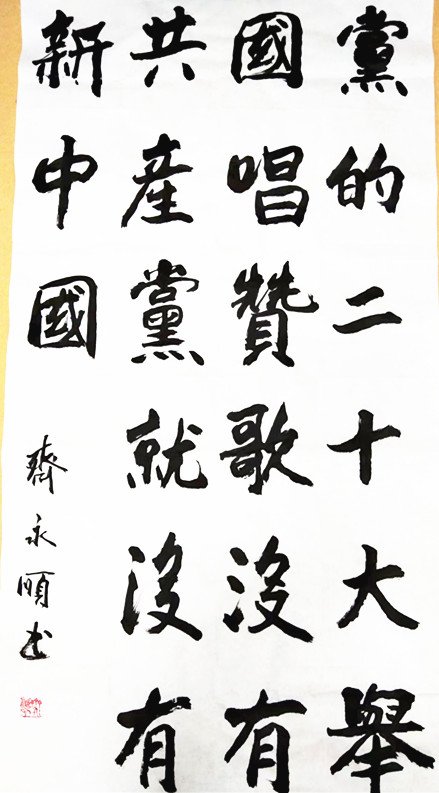 黨的二十大舉
國唱贊歌沒有
共產黨就沒有
新中國
齊永順书